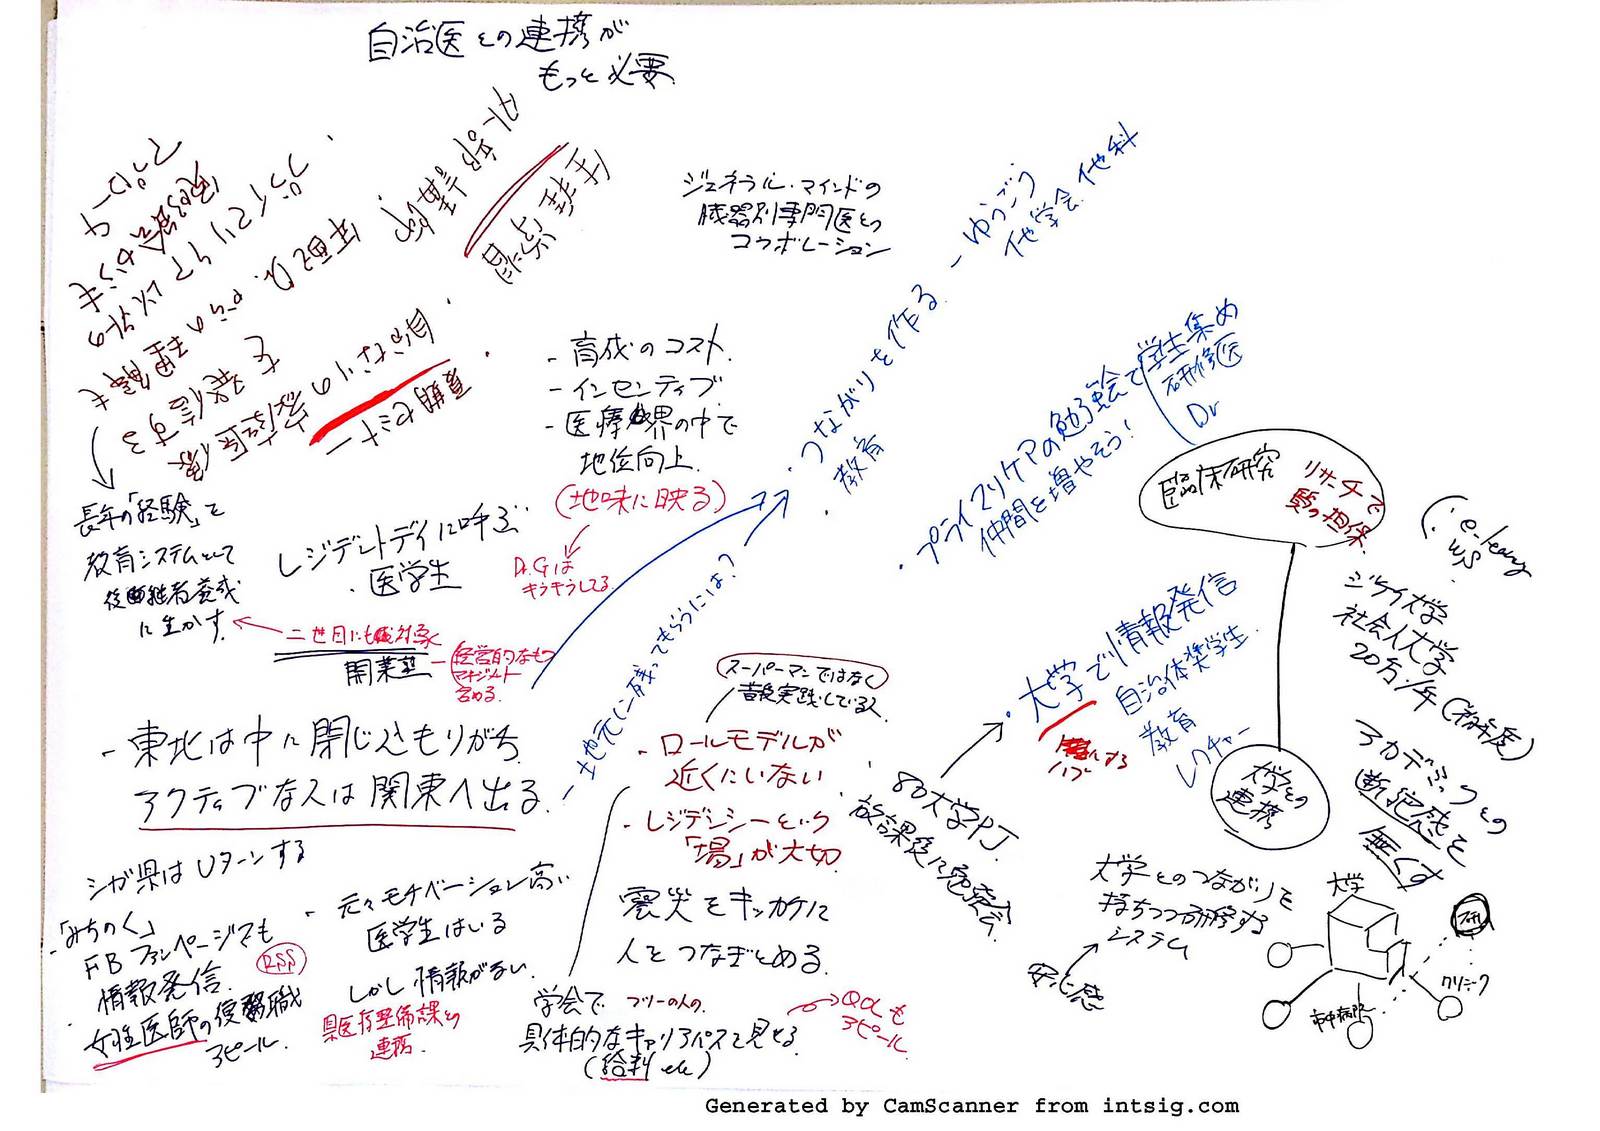 自治医との連携が
もっと必要
ジェネラル・マインドの
臓器別専門医との
コラボレーション
つながりを作る
教育
ゆうごう
他学会 他科
- 育成のコスト
- インセンティブ
- 医療界の中で
地位向上
(地味に映る)
Dr.Gは
キラキラしてる
夏期セミナー
を発信する
長年の「経験」を
教育システムとして
後継者養成
に生かす
レジデントデイに呼ぶ
・医学生
二世目にも対象
開業塾
経営的なもの
マネジメント
含める
- 東北は中に閉じこもりがち
アクティブな人は関東へ出る
- 地元に残ってもらうには?
・プライマリケアの勉強会で学生集め
仲間を増やそう!
研修医
Dr
臨床研究
リサーチで
質の担保
e-learning
WS
ジケイ大学
社会人大学
20万/年(程度)
アカデミックとの
断絶感を
無くす
・大学で情報発信
自治体奨学生
教育
レクチャー
ハブ
大学との
連携
スーパーマンではなく
普段実践している人
- ロールモデルが
近くにいない
- レジデンシーという
「場」が大切
80大学PJ
放課後に勉強会
シガ県はUターンする
- 「みちのく」
FBファンページでも
情報発信
RSS
・女性医師の復職
アピール
- 元々モチベーション高い
医学生はいる
しかし情報がない
県医療整備課との
連携
震災をキッカケに
人をつなぎとめる
学会で フリーの人の
具体的なキャリアパスを見せる
(給料etc)
QOLも
アピール
大学とのつながりを
持ちつつ研修する
システム
安心感
大学
市中病院
クリニック
Generated by CamScanner from intsig.com